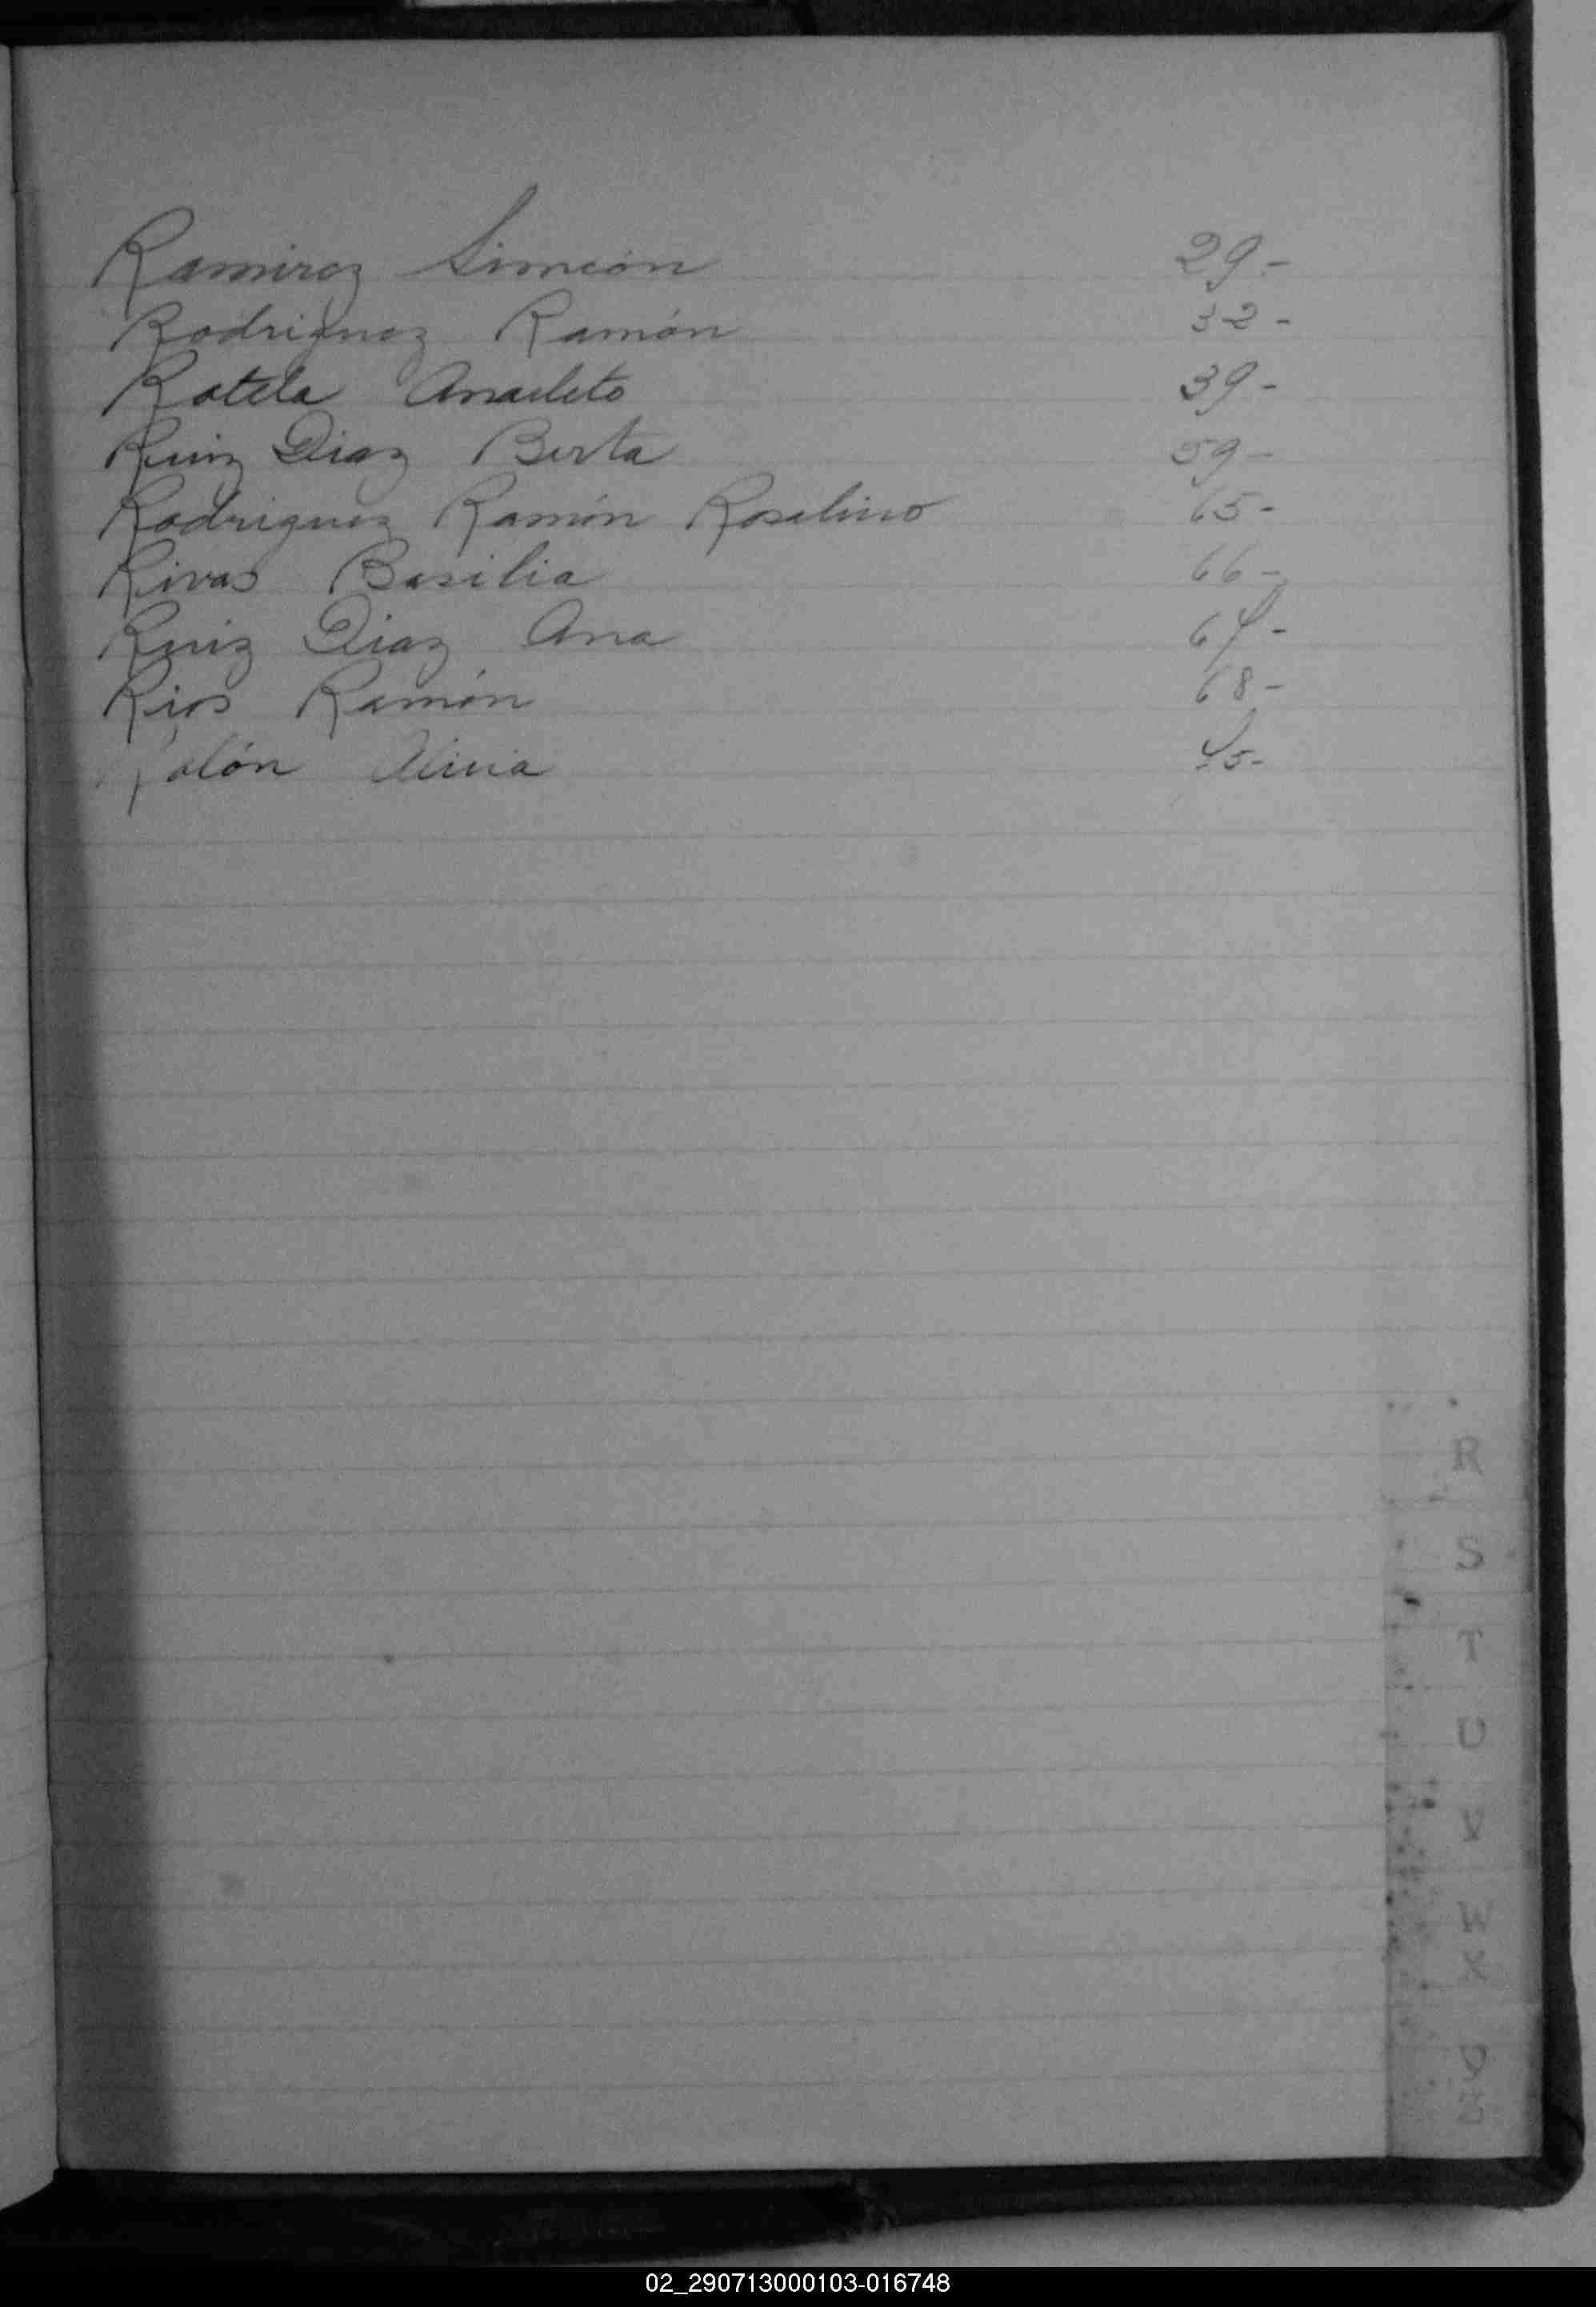 Ramirez Simeón 29.-
Rodriguez Ramón 32-
Rotela Anacleto 39-
Ruiz Diaz Berta 59-
Rodriguez Ramón Roselino 65-
Rivas Basilia 66-
Ruiz Diaz Ana 67-
Rios Ramón 68-
Rolón 75-
R
S
T
U
V
W
X
02_290713000103-016748